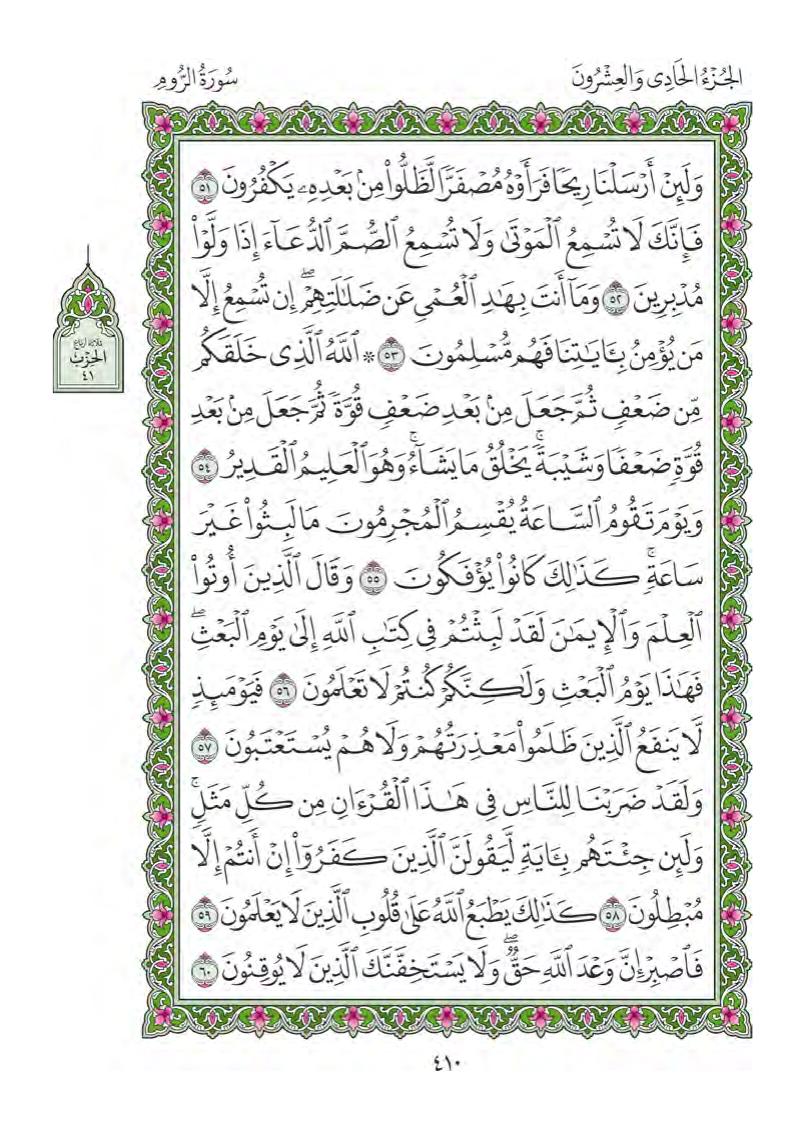 الجُزْءُ الحَادِى وَالعِشْرُونَ
سُورَةُ الرُّومِ
وَلَئِنْ أَرْسَلْنَا رِيحًا فَرَأَوْهُ مُصْفَرًّا لَّظَلُّوا۟ مِنۢ بَعْدِهِۦ يَكْفُرُونَ ٥١
فَإِنَّكَ لَا تُسْمِعُ ٱلْمَوْتَىٰ وَلَا تُسْمِعُ ٱلصُّمَّ ٱلدُّعَآءَ إِذَا وَلَّوْا۟
مُدْبِرِينَ ٥٢ وَمَآ أَنتَ بِهَٰدِ ٱلْعُمْىِ عَن ضَلَٰلَتِهِمْ ۖ إِن تُسْمِعُ إِلَّا
مَن يُؤْمِنُ بِـَٔايَٰتِنَا فَهُم مُّسْلِمُونَ ٥٣ * ٱللَّهُ ٱلَّذِى خَلَقَكُم
مِّن ضَعْفٍ ثُمَّ جَعَلَ مِنۢ بَعْدِ ضَعْفٍ قُوَّةً ثُمَّ جَعَلَ مِنۢ بَعْدِ
قُوَّةٍ ضَعْفًا وَشَيْبَةً ۚ يَخْلُقُ مَا يَشَآءُ ۖ وَهُوَ ٱلْعَلِيمُ ٱلْقَدِيرُ ٥٤
وَيَوْمَ تَقُومُ ٱلسَّاعَةُ يُقْسِمُ ٱلْمُجْرِمُونَ مَا لَبِثُوا۟ غَيْرَ
سَاعَةٍ ۚ كَذَٰلِكَ كَانُوا۟ يُؤْفَكُونَ ٥٥ وَقَالَ ٱلَّذِينَ أُوتُوا۟
ٱلْعِلْمَ وَٱلْإِيمَٰنَ لَقَدْ لَبِثْتُمْ فِى كِتَٰبِ ٱللَّهِ إِلَىٰ يَوْمِ ٱلْبَعْثِ ۖ
فَهَٰذَا يَوْمُ ٱلْبَعْثِ وَلَٰكِنَّكُمْ كُنتُمْ لَا تَعْلَمُونَ ٥٦ فَيَوْمَئِذٍ
لَّا يَنفَعُ ٱلَّذِينَ ظَلَمُوا۟ مَعْذِرَتُهُمْ وَلَا هُمْ يُسْتَعْتَبُونَ ٥٧
وَلَقَدْ ضَرَبْنَا لِلنَّاسِ فِى هَٰذَا ٱلْقُرْءَانِ مِن كُلِّ مَثَلٍ ۚ
وَلَئِن جِئْتَهُم بِـَٔايَةٍ لَّيَقُولَنَّ ٱلَّذِينَ كَفَرُوٓا۟ إِنْ أَنتُمْ إِلَّا
مُبْطِلُونَ ٥٨ كَذَٰلِكَ يَطْبَعُ ٱللَّهُ عَلَىٰ قُلُوبِ ٱلَّذِينَ لَا يَعْلَمُونَ ٥٩
فَٱصْبِرْ إِنَّ وَعْدَ ٱللَّهِ حَقٌّ ۖ وَلَا يَسْتَخِفَّنَّكَ ٱلَّذِينَ لَا يُوقِنُونَ ٦٠
ثلاثة أرباع
الحِزْب
٤١
٤١٠